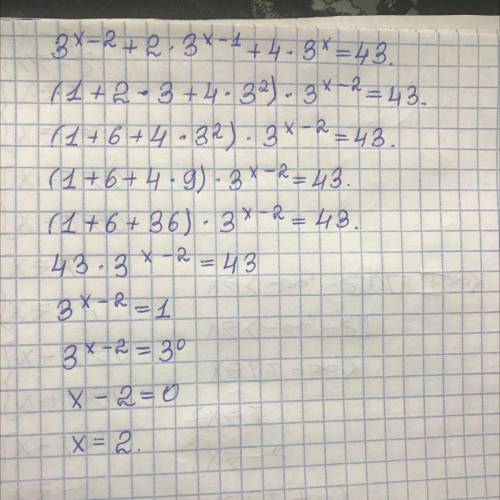 3^{x-2} + 2 · 3^{x-1} + 4 · 3^x = 43.
(1 + 2 · 3 + 4 · 3^2) · 3^{x-2} = 43.
(1 + 6 + 4 · 3^2) · 3^{x-2} = 43.
(1 + 6 + 4 · 9) · 3^{x-2} = 43.
(1 + 6 + 36) · 3^{x-2} = 43.
43 · 3^{x-2} = 43
3^{x-2} = 1
3^{x-2} = 3^0
x - 2 = 0
x = 2.